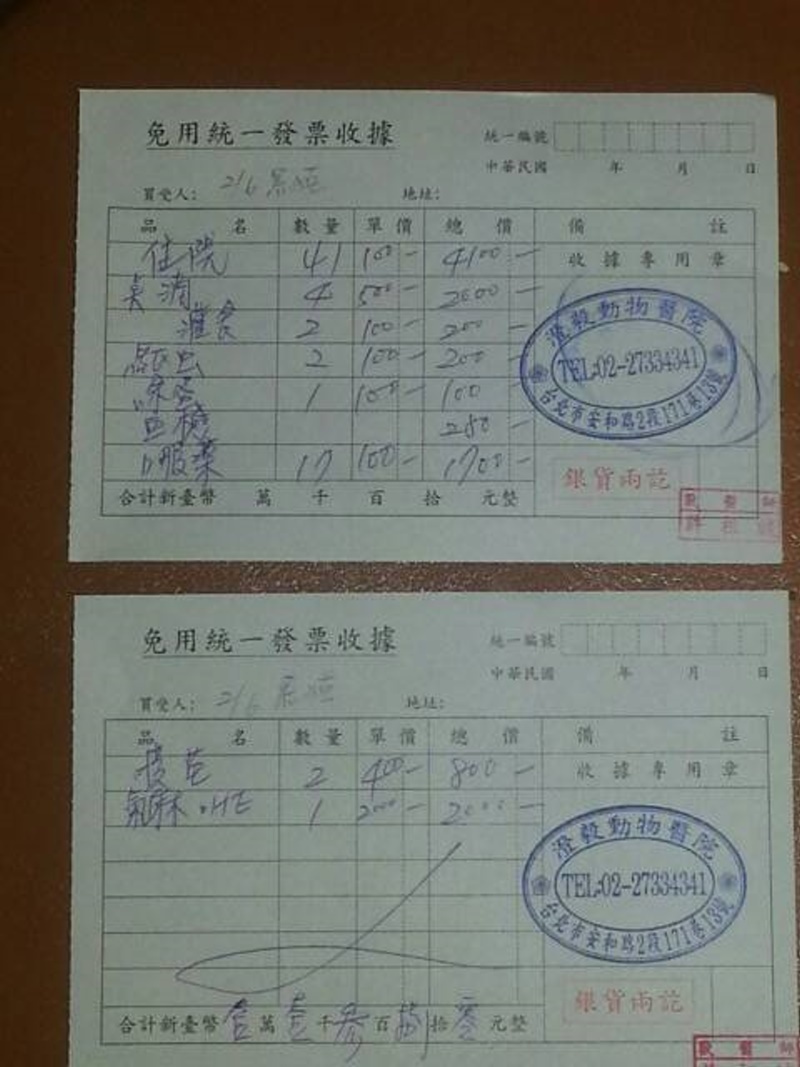 免用統一發票收據
統一編號
中華民國 年 月 日
買受人: 2/6 地址:
品名 數量 單價 總價 備註
住院 41 100- 4100-
收據專用章
4 500- 2000-
灌食 2 100- 200-
2 100- 200-
1 100- 100-
250-
口服藥 17 100- 1700-
澄毅動物醫院
TEL:02-27334341
台北市安和路2段171巷13號
銀貨兩訖
合計新臺幣 萬 千 百 拾 元整
獸醫師
免用統一發票收據
統一編號
中華民國 年 月 日
買受人: 2/6 地址:
品名 數量 單價 總價 備註
2 400- 800-
收據專用章
氣麻+HE 1 2000- 2000-
澄毅動物醫院
TEL:02-27334341
台北市安和路2段171巷13號
銀貨兩訖
合計新臺幣 壹萬 壹千 參百 拾 零元整
獸醫師